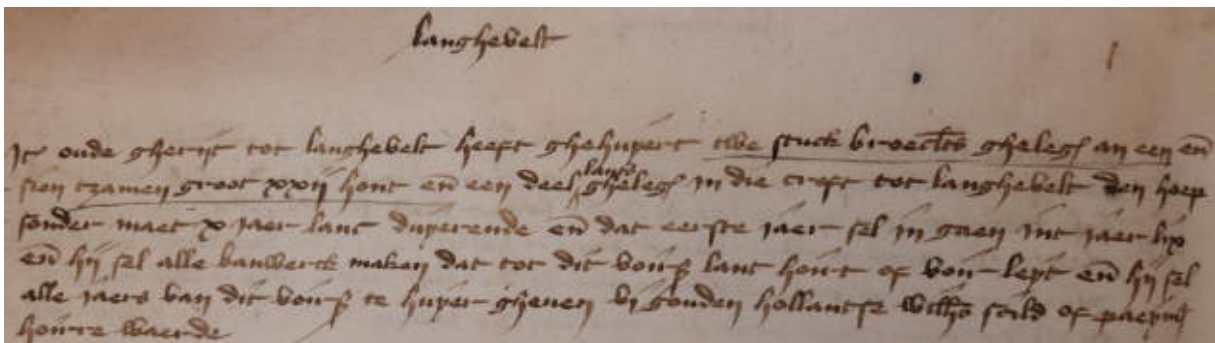 langhevelt
It oude gherijt tot langhevelt heeft ghehuyert twe stuck broectts gheleg an een en̄
sien tzamen groot xxij hont en̄ een deel lants gheleg in die croft tot langhevelt den hoep
sonder maet x jaer lanc duyerende en̄ dat eerste jaer sel in gaen int jaer lix
en̄ hij sel alle bauwerck maken dat tot dit vours lant hoirt of voir leyt en̄ hij sel
alle jaers van dit vours te huyer gheven vj gouden hollantse willhs scild of paeym
hoirre waerde